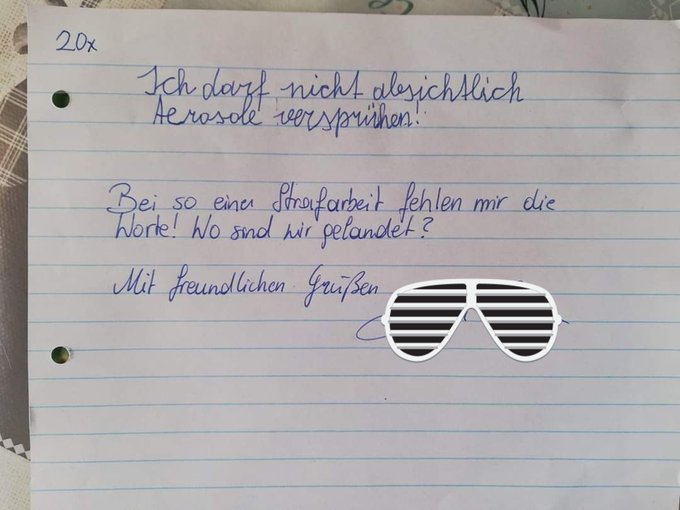 20x
Ich darf nicht absichtlich
Aerosole versprühen!
Bei so einer Strafarbeit fehlen mir die
Worte! Wo sind wir gelandet?
Mit freundlichen Grüßen